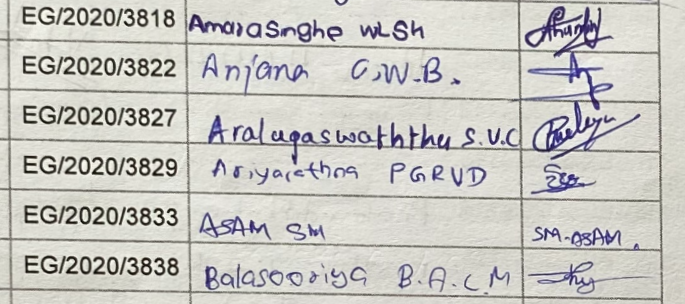 EG/2020/3818 Amarasinghe WLSH
EG/2020/3822 Anjana C.W.B.
EG/2020/3827 Aralugaswaththa S.V.C
EG/2020/3829 Ariyarathna PGRVD
EG/2020/3833 ASAM SM SM-ASAM.
EG/2020/3838 Balasooriya B.A.C.M